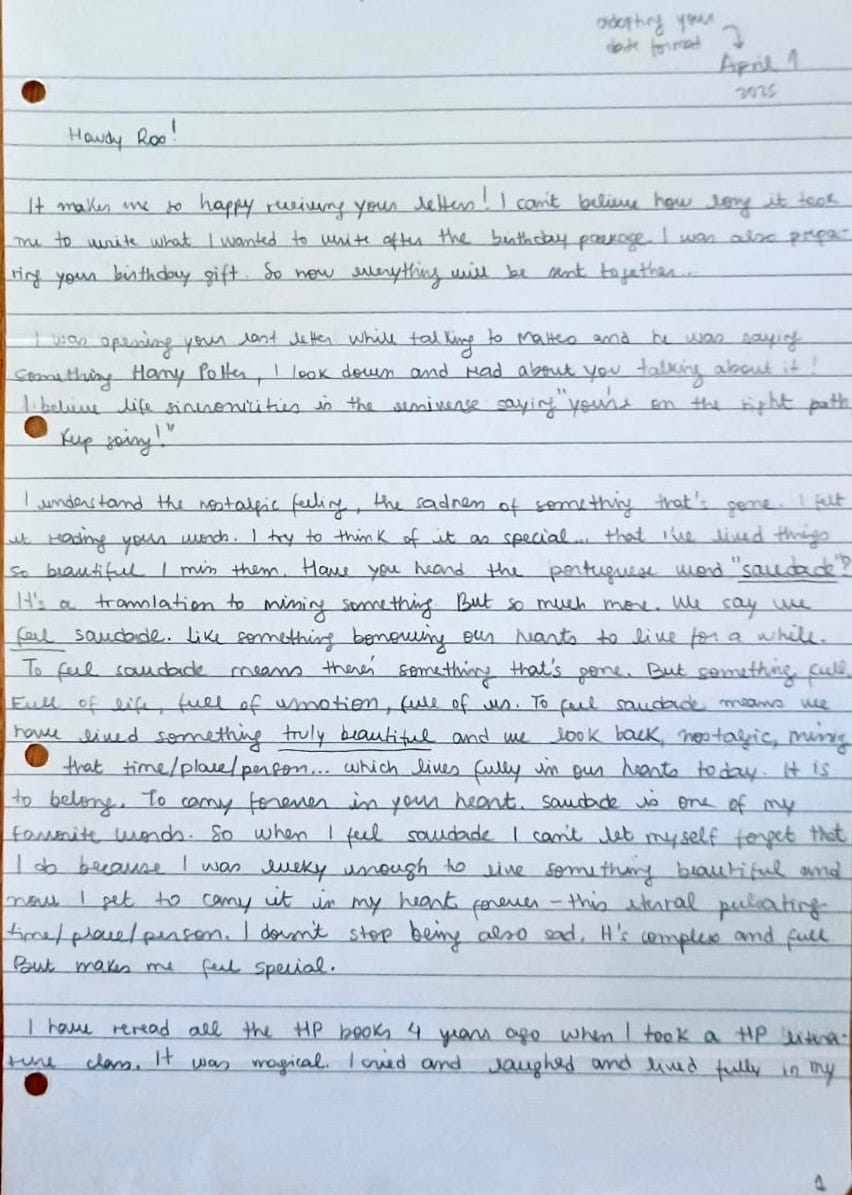 adopting your
date format
April 1
2025
Howdy Roo!
It makes me so happy receiving your letters! I can't believe how long it took
me to write what I wanted to write after the birthday package. I was also prepa-
ring your birthday gift. So now everything will be sent together...
I was opening your last letter while talking to Matteo and he was saying
something Harry Potter, I look down and read about you talking about it!
I believe life sincronicities is the universe saying "you're on the right path
Keep going!"
I understand the nostalgic feeling, the sadness of something that's gone. I felt
it reading your words. I try to think of it as special... that I've lived things
so beautiful I miss them. Have you heard the portuguese word "saudade"?
It's a translation to missing something. But so much more. We say we
feel saudade. Like something borrowing our hearts to live for a while.
To feel saudade means there's something that's gone. But something full.
Full of life, full of emotion, full of us. To feel saudade means we
have lived something truly beautiful and we look back, nostalgic, missing
that time/place/person... which lives fully in our hearts today. It is
to belong. To carry forever in your heart. Saudade is one of my
favourite words. So when I feel saudade I can't let myself forget that
I do because I was lucky enough to live something beautiful and
now I get to carry it in my heart forever - this eternal pulsating
time/place/person. I doesn't stop being also sad. It's complex and full
But makes me feel special.
I have reread all the HP books 4 years ago when I took a HP litera-
ture class. It was magical. I cried and laughed and lived fully in my
1